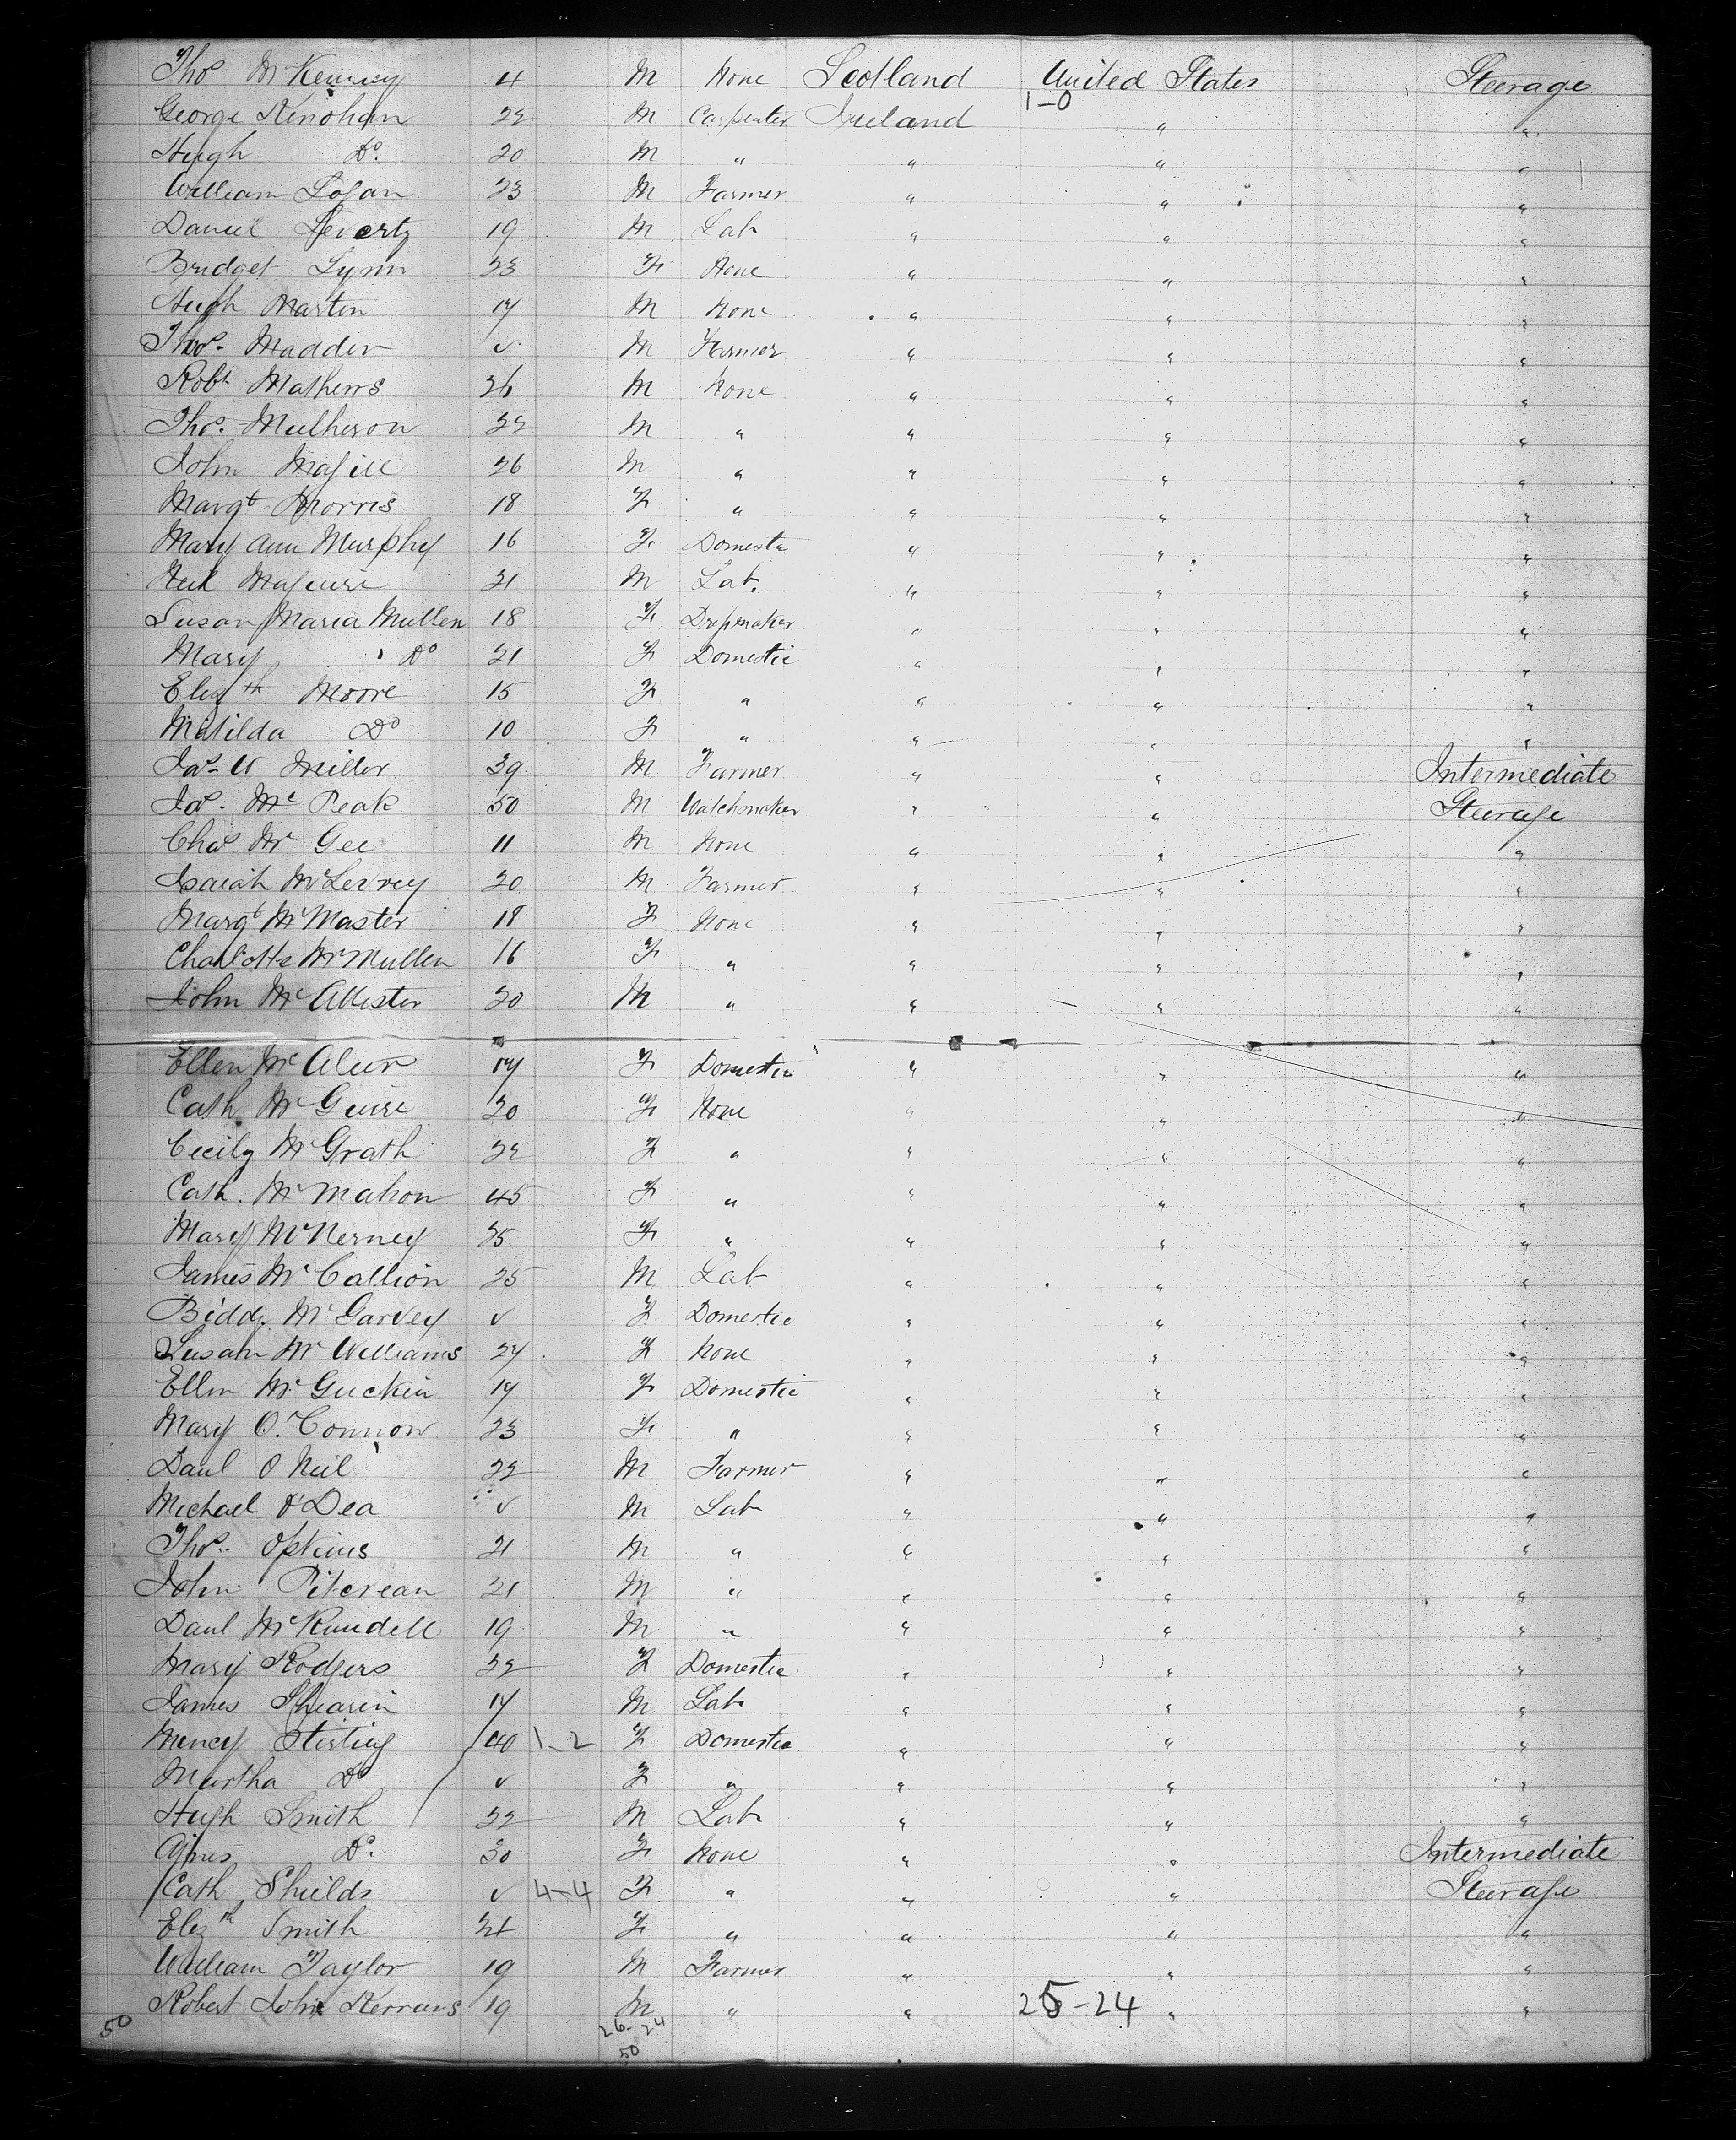 Thos McKenney 4 M None Scotland United States Steerage
1-0
George Kinohan 22 M Carpenter Ireland " "
Hugh Do. 20 M " " " "
William Logan 23 M Farmer " " "
Daniel Leverty 19 M Lab " " "
Bridget Lynn 23 F None " " "
Hugh Martin 17 M None " " "
Thos. Madden ✓ M Farmer " " "
Robt Mathews 26 M None " " "
Thos. Mulheron 22 M " " " "
John Magill 26 M " " " "
Margt Morris 18 F " " " "
Mary Ann Murphy 16 F Domestic " " "
Neil Maguire 21 M Lab. " " "
Susan Maria Mullen 18 F Dressmaker " " "
Mary Do 21 F Domestic " " "
Elizth Moore 15 F " " " "
Matilda Do 10 F " " " "
Jas. W Miller 39 M Farmer " " Intermediate
Jas. Mc Peak 50 M Watchmaker " " Steerage
Chas Mc Gee 11 M None " " "
Isaiah McLevrey 20 M Farmer " " "
Margt McMaster 18 F None " " "
Charlotte McMullen 16 F " " " "
John McAllister 20 M " " " "
Ellen McAleer 17 F Domestic " " "
Cath McGuire 20 F None " " "
Cecily McGrath 22 F " " " "
Cath. McMahon 45 F " " " "
Mary McNerney 25 F " " " "
James McCallion 25 M Lab " " "
Biddy McGarvey ✓ F Domestic " " "
Susan McWilliams 27 F None " " "
Ellen McGuckin 17 F Domestic " " "
Mary O'Connor 23 F " " " "
Danl O Neil 22 M Farmer " " "
Michael O'Dea ✓ M Lab " " "
Thos. Opkins 21 M " " " "
John 21 M " " " "
Danl McRandell 19 M " " " "
Mary Rodgers 22 F Domestic " " "
James Shearin 17 M Lab " " "
Stirling 40 1-2 F Domestic " " "
Martha Do ✓ F " " " "
Hugh Smith 22 M Lab " " "
Agnes Do. 30 F None " " Intermediate
Cath Shields ✓ 4-4 F " " " Steerage
Elizth Smith 21 F " " " "
William Taylor 19 M Farmer " " "
Robert John Kerrans 19 M " " 25-24 " "
50 26-24
50